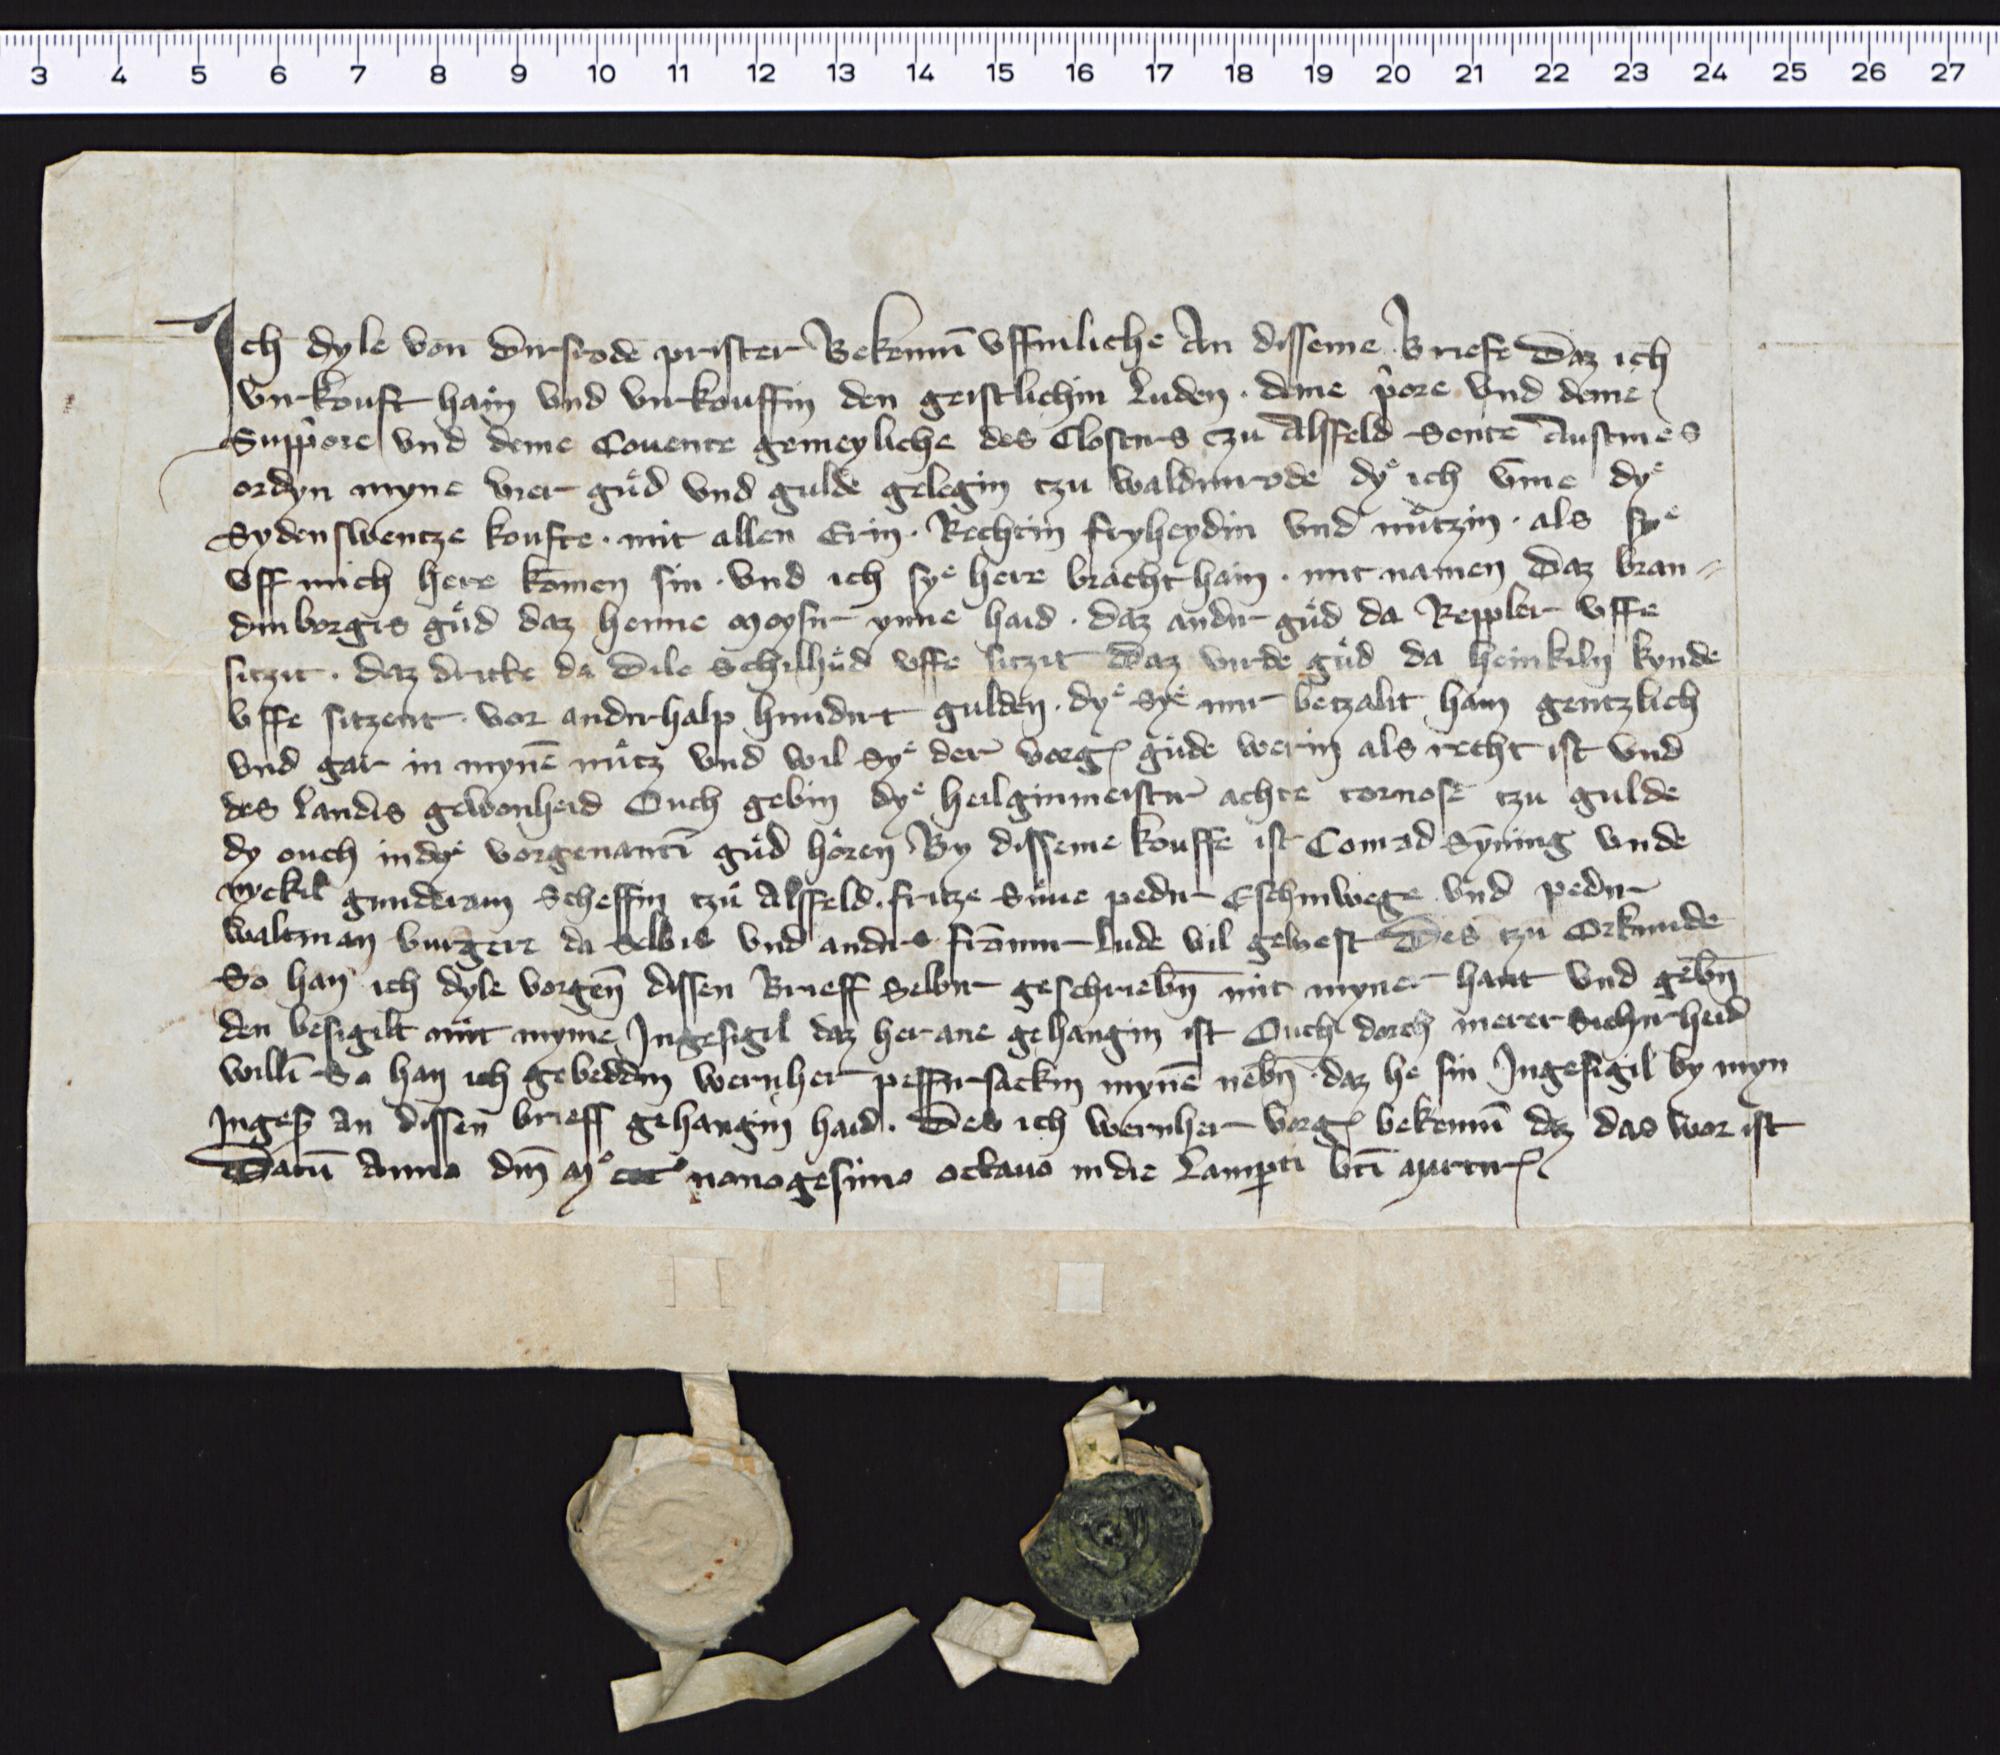 3 4 5 6 7 8 9 10 11 12 13 14 15 16 17 18 19 20 21 22 23 24 25 26 27
Ich dyle von dirsrode prister Bekennī uffinliche An disseme Briefe Daz ich
virkouft hain und virkouffin den geistlichin luden · deme p̄ore und deme
Supp̄ore und deme Covente gemeyliche des Closters tzu Alsfeld Sente Austines
ordyn myne vier gůd und gulde gelegin tzu waldinrode dyͤ ich ūme dyͤ
Sydenswentze koufte · mit allen Erin · Rechtin fryheydin und nůtzin · als syͤ
uff mich here komen sin · und ich syͤ here bracht hain · mit namen Daz bran⸗
dinborgis gůd daz henne moysir ynne haid · daz andir gůd da Reppler uffe
sitzit · daz dritte da Dile Schilhůd uffe sitzit Daz virde gůd da heinkiln kynde
uffe sitzent · vor andirhalp hundirt gulden · dyͤ Syͤ mir betzalit hain gentzlich
und gar in mynē nůtz und wil Syͤ der vorg gůde werin als recht ist und
des landis gewonheid Ouch gebin dyͤ heilginmeistir achte tornose tzu gulde
dy ouch in dyͤ vorgenantī gůd hôren By disseme kouffe ist Conrad Syning unde
nyckil gunderam Scheffin tzů Alsfeld · fritze Sůne pedir Eschinwege und pedir
waltman burgere da selbis und andirs frōmir lude vil gewest Des tzu Orkunde
So han ich dyle vorgēn dissen Brieff Selbir geschriebn̄ mit myner hant und gebn̄
den besigilt mit myme Ingesigil daz her ane gehangin ist Ouch dorch merer Sichirheid
willī So han ich gebeddin wernher peffirsackin mynē nebn̄ · daz he sin Ingesigil by myn
Inges an dissen brieff gehangin haid · Des ich wernher vorg bekennī daz das wor ist
Datū Anno dn̄i mͦ cccͦ nonogesimo octavo in die lamperti bt̄i martir